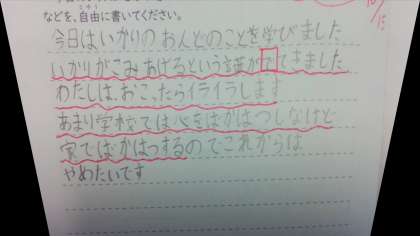 などを、自由に書いてください。
今日はいかりのおんどのことを学びました
いかりがこみあげるという言葉がでてきました
わたしは、おこったらイライラします
あまり学校ではいかりをばくはつしないけど
家ではばくはつするのでこれからは
やめたいです